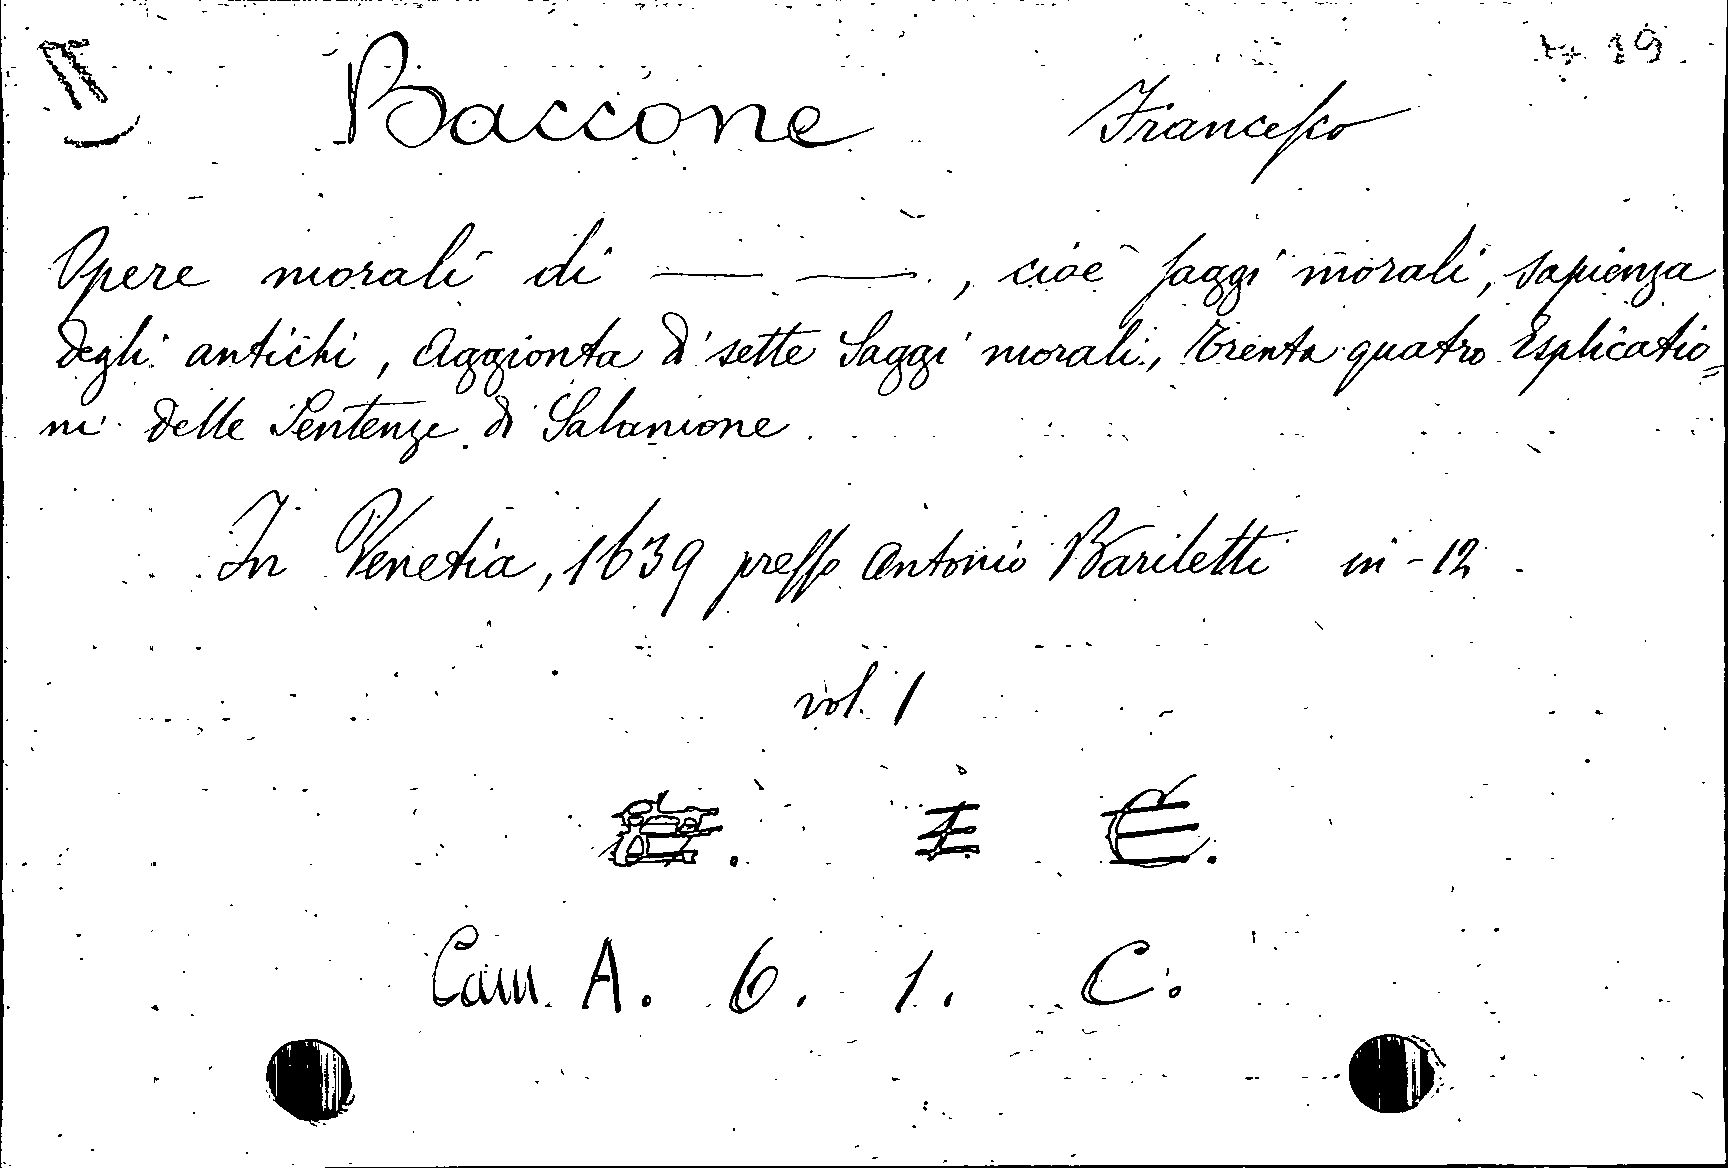 II 19
Baccone Francesco
Opere morali di — — , cioè saggi morali, sapienza
degli antichi, Aggionta di sette Saggi morali, trenta quatro Esplicatio=
ni delle Sentenze di Salamone
In Venetia, 1639 presso Antonio Bariletti in-12.
vol. 1
Cam. A. 6. 1. C.